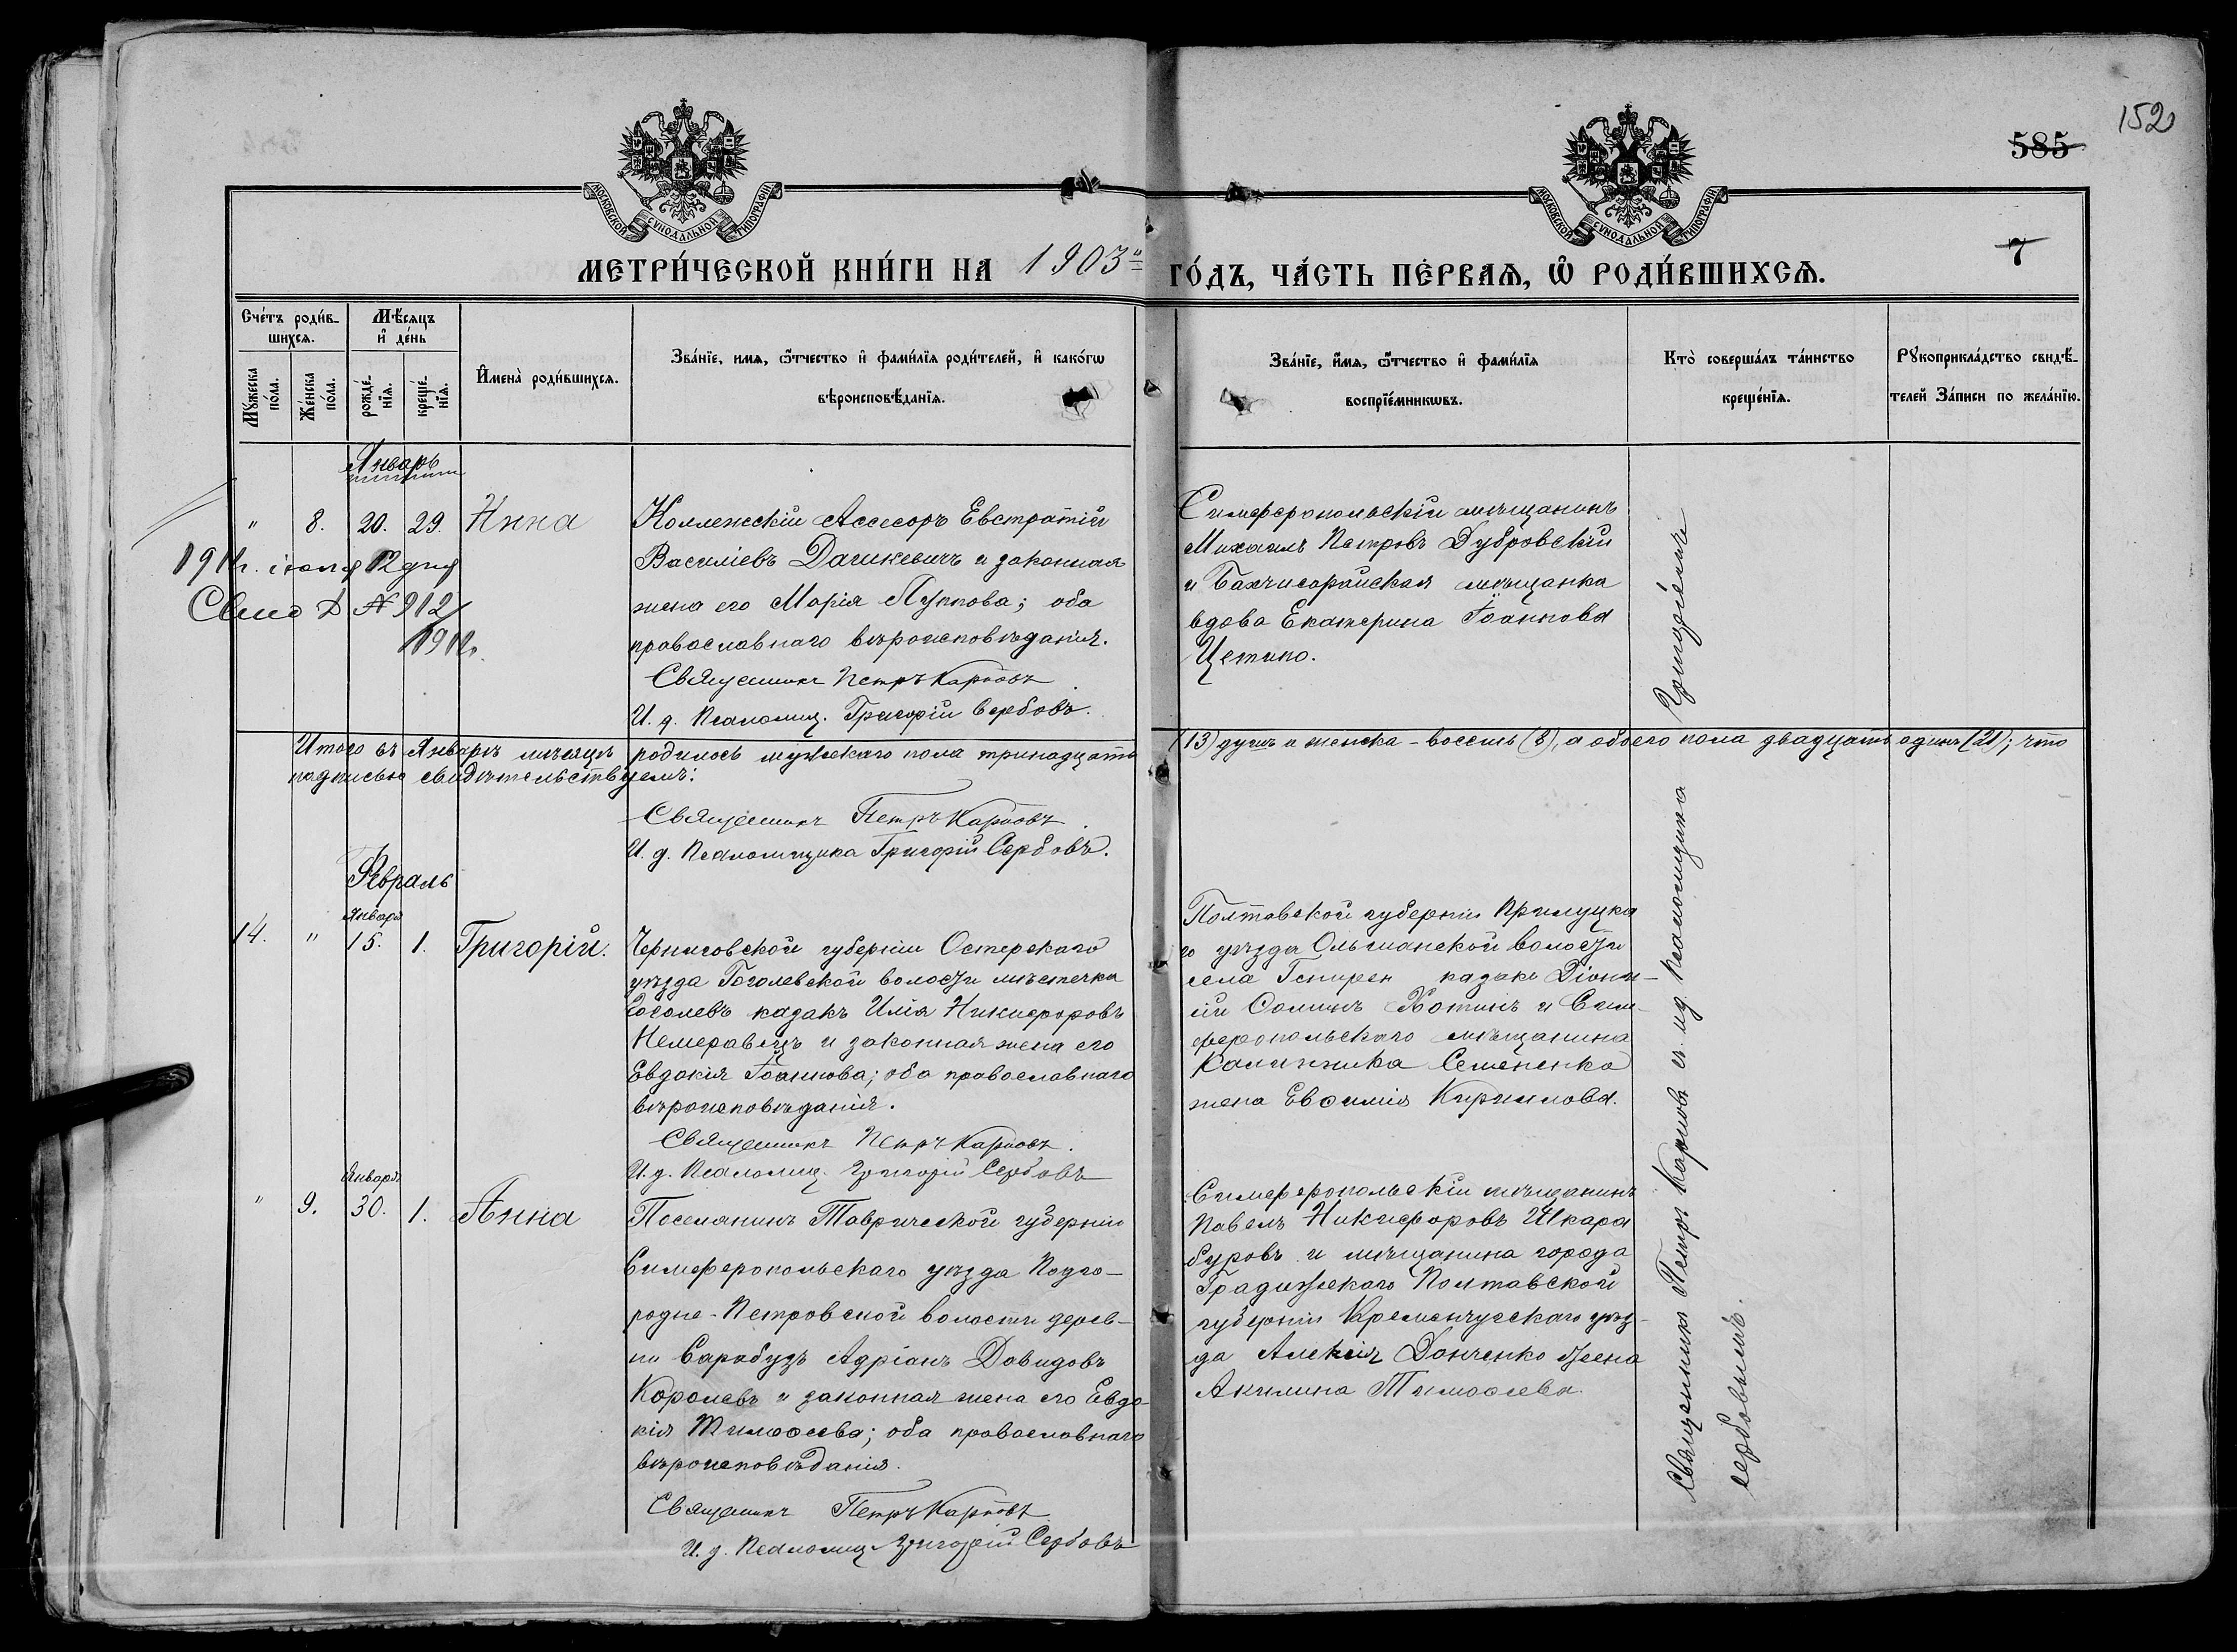 152
585
7
МОСКОВСКОЙ СѴНОДАЛЬНОЙ ТИПОГРАФІИ
МОСКОВСКОЙ СѴНОДАЛЬНОЙ ТИПОГРАФІИ
МЕТРИ́ЧЕСКОЙ КНИ́ГИ НА 1903й ГО́ДЪ, ЧА́СТЬ ПЕ́РВАѦ, Ѡ РОДИ́ВШИХСѦ.
Сче́тъ роди́в-
шихсѧ.
Мѣ́сѧцъ
и҆ де́нь
Мꙋ́жеска
по́ла.
Же́нска
по́ла.
рожде́-
нїѧ.
креще́-
нїѧ.
И҆мена̀ роди́вшихсѧ.
Зва́нїе, имѧ, ѻ҆́тчество и҆ фами́лїѧ роди́телей, и҆ како́гѡ
вѣроисповѣ́данїѧ.
Зва́нїе, и҆́мѧ, ѻ҆́тчество и҆ фами́лїѧ
воспрїе́мникѡвъ.
Кто̀ соверша́лъ та́инство
креще́нїѧ.
Рꙋкоприкла́дство свидѣ́-
телей За́писи по жела́нїю.
Январь
" 8. 20. 29. Нина
Коллежскій Ассесоръ Евстратій
Василіевъ Дашкевичъ и законная
жена его Марія Луппова; оба
православнаго вѣроисповѣданія.
Священникъ Петръ Карповъ
И. д. Псаломщ. Григорій Сербовъ.
Симферопольскій мѣщанинъ
Михаилъ Петровъ Дубровскій
и Бахчисарайская мѣщанка
вдова Екатерина Іоаннова
Цетино.
№ 912
Итого въ Январѣ мѣсяцѣ родилось мужескаго пола тринадцать (13) душъ и женска - восемь (8), а обоего пола двадцать одинъ (21); что
подписью свидѣтельствуемъ:
Священникъ Петръ Карповъ.
И. д. Псаломщика Григорій Сербовъ.
Февраль
Января
14. " 15. 1. Григорій.
Черниговской губерніи Остерскаго
уѣзда Гоголевской волости мѣстечка
Гоголевъ казакъ Илія Никифоровъ
Кемеравецъ и законная жена его
Евдокія Іоаннова; оба православнаго
вѣроисповѣданія.
Священникъ Петръ Карповъ.
И. д. Псаломщ. Григорій Сербовъ
Полтавской губерніи Прилуцка
го уѣзда Ольшанской волости
села казакъ Діони-
ій и Сим-
феропольскаго мѣщанина
Каллиника Семененко
жена Евѳимія Кириллова.
Января
" 9. 30. 1. Анна
Поселянинъ Таврической губерніи
Симферопольскаго уѣзда Подго-
родне-Петровской волости дерев-
ни Сарабузъ Адріанъ Давидовъ
Королевъ и законная жена его Евдо-
кія Тимоѳеева; оба православнаго
вѣроисповѣданія.
Священникъ Петръ Карповъ
И. д. Псаломщ. Григорій Сербовъ
Симферопольскій мѣщанинъ
Павелъ Никифоровъ Шкара
буровъ и мѣщанина города
Градижскаго Полтавской
губерніи Кременчугскаго уѣз-
да Алексія Донченко жена
Акилина Тимоѳеева.
Священникъ Петръ Карповъ съ ид. псаломщика Григоріемъ
Сербовымъ.